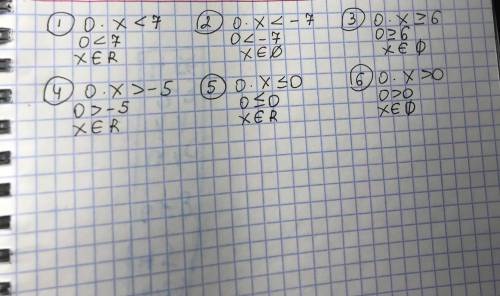 ① 0 · x < 7
0 < 7
x ∈ R
② 0 · x < -7
0 < -7
x ∈ Ø
③ 0 · x ≥ 6
0 ≥ 6
x ∈ Ø
④ 0 · x > -5
0 > -5
x ∈ R
⑤ 0 · x ≤ 0
0 ≤ 0
x ∈ R
⑥ 0 · x > 0
0 > 0
x ∈ Ø